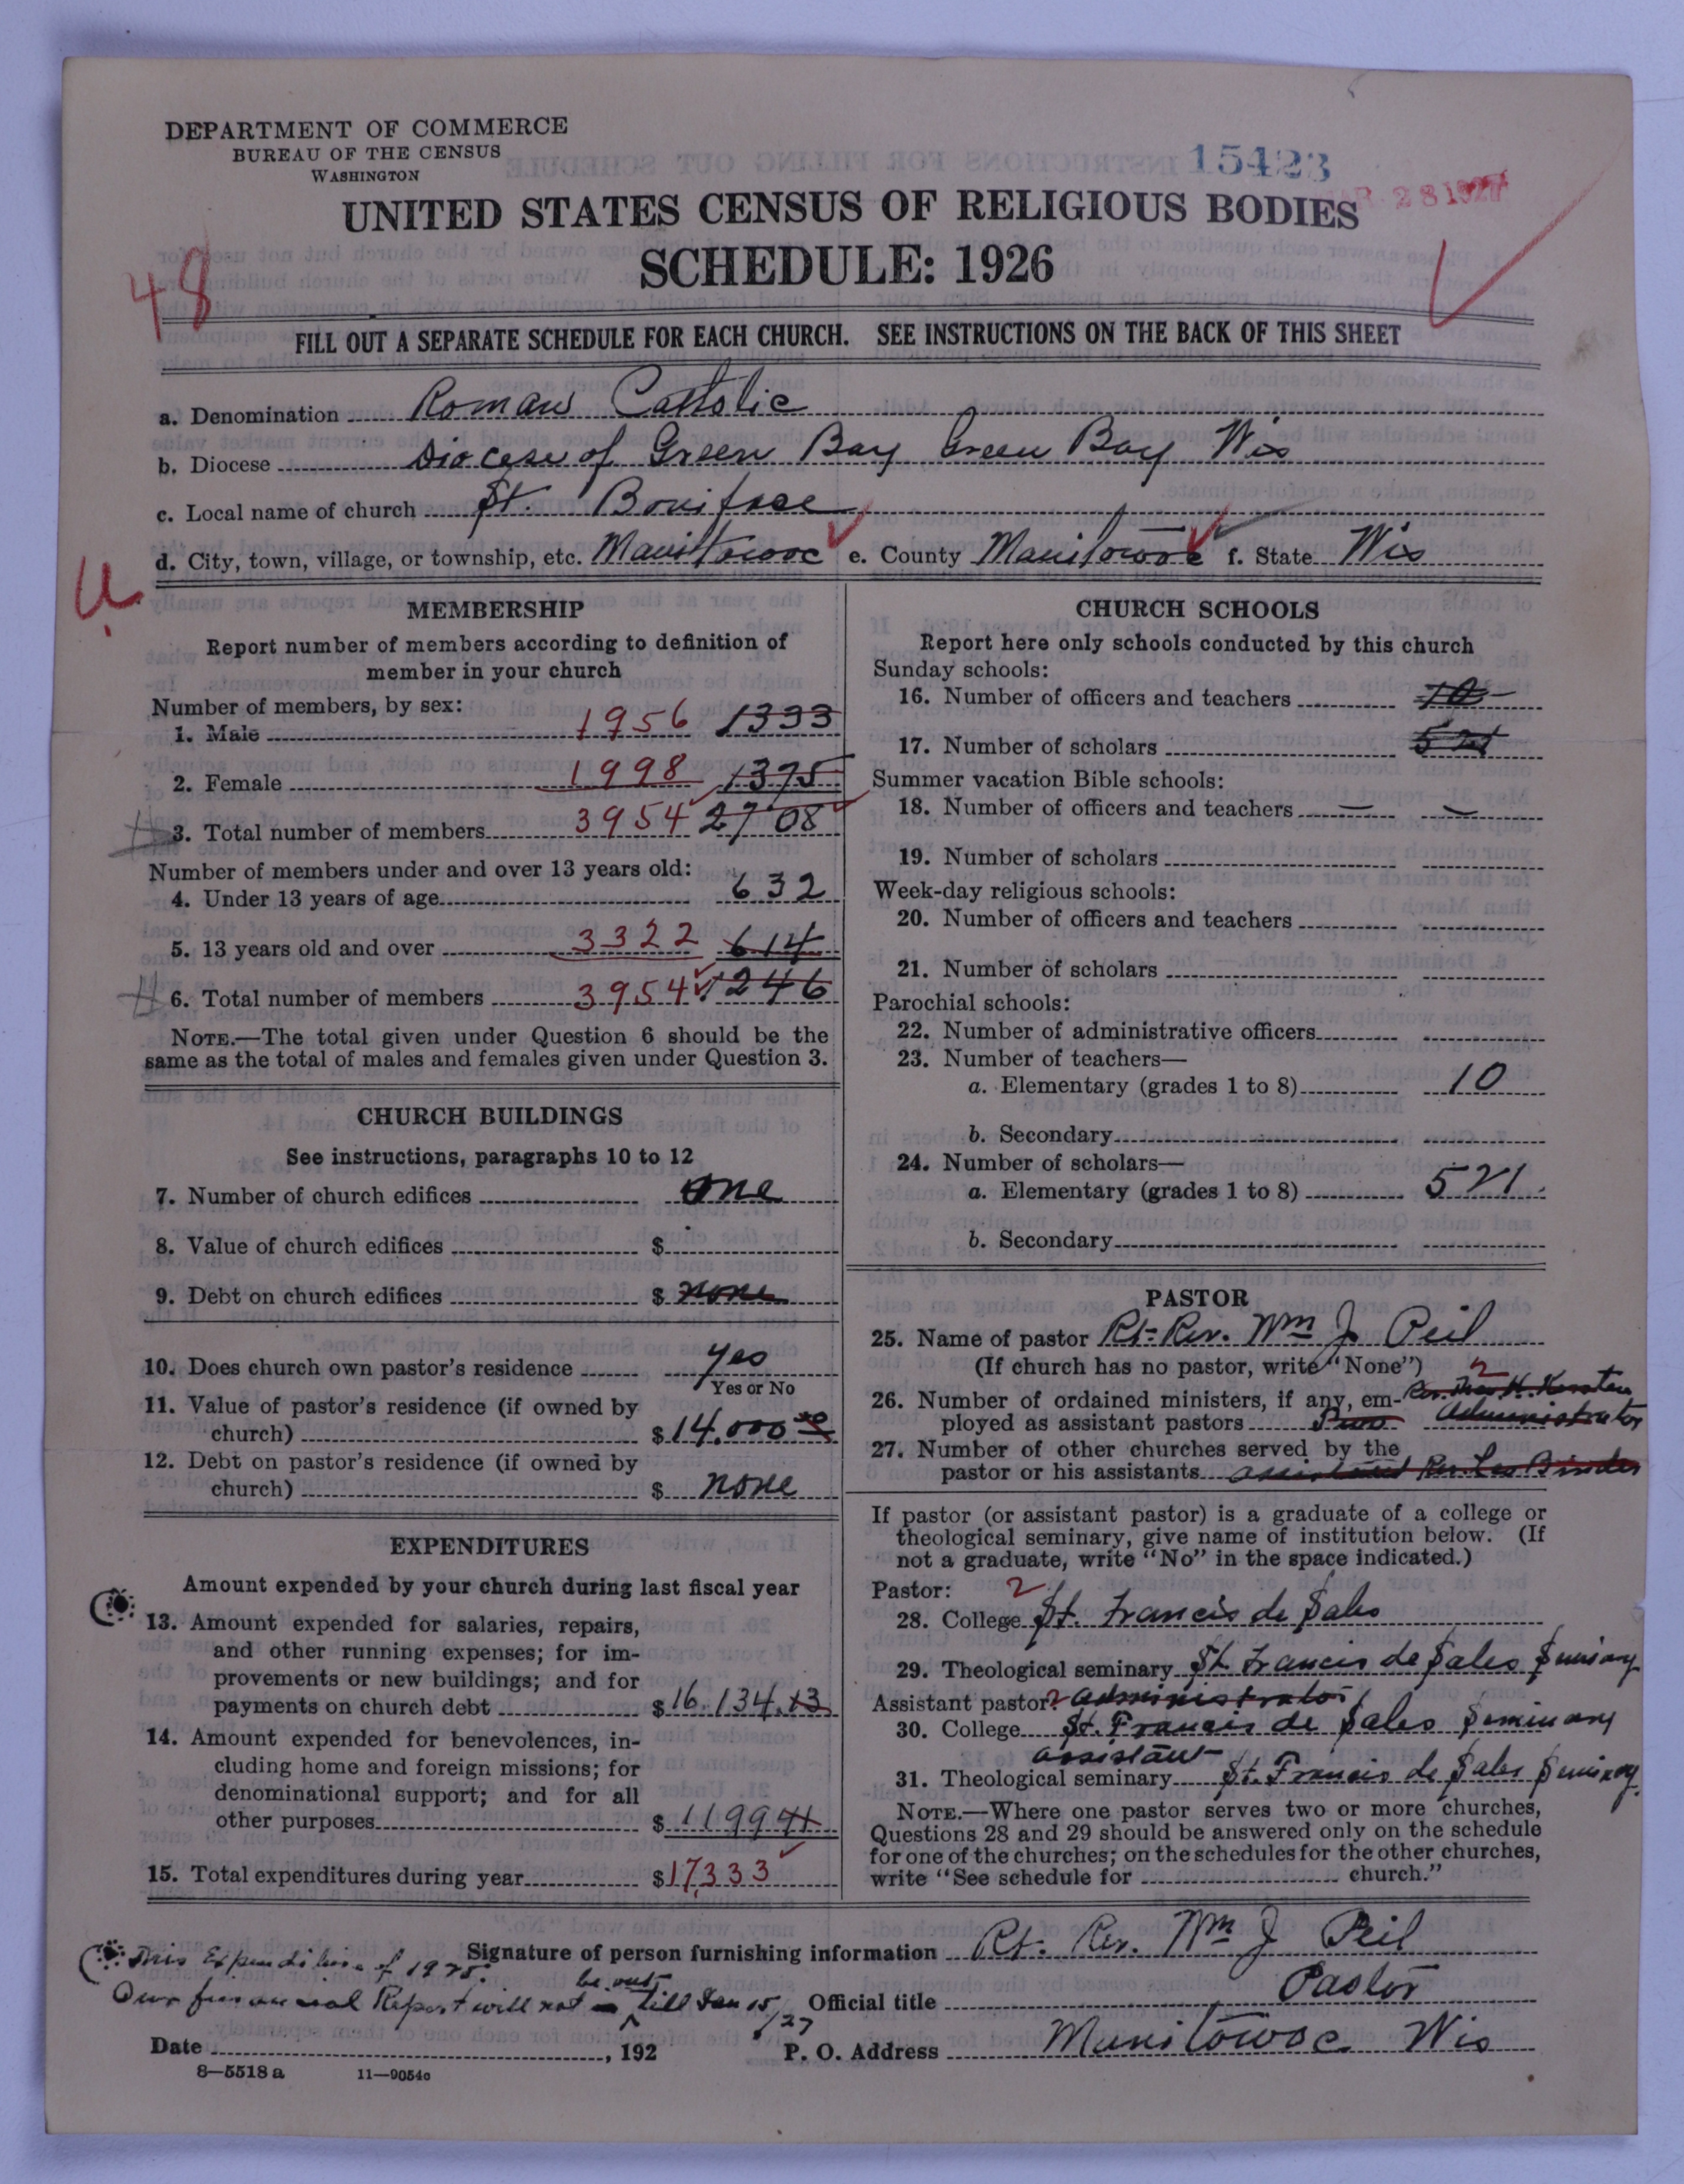 DEPARTMENT OF COMMERCE
BUREAU OF THE CENSUS
WASHINGTON
15423
28 1927
UNITED STATES CENSUS OF RELIGIOUS BODIES
SCHEDULE: 1926
48
FILL OUT A SEPARATE SCHEDULE FOR EACH CHURCH. SEE INSTRUCTIONS ON THE BACK OF THIS SHEET
a. Denomination Roman Catholic
b. Diocese Diocese of Green Bay Green Bay Wis
c. Local name of church St. Boniface
d. City, town, village, or township, etc. Manitowoc e. County Manitowoc f. State Wis
U
MEMBERSHIP
Report number of members according to definition of
member in your church
Number of members, by sex:
1. Male 1956 1333
2. Female 1998 1375
3. Total number of members 3954 2708
Number of members under and over 13 years old:
4. Under 13 years of age 632
5. 13 years old and over 3322 614
6. Total number of members 3954 1246
NOTE.—The total given under Question 6 should be the
same as the total of males and females given under Question 3.
CHURCH BUILDINGS
See instructions, paragraphs 10 to 12
7. Number of church edifices one
8. Value of church edifices $
9. Debt on church edifices $ none
10. Does church own pastor's residence yes
Yes or No
11. Value of pastor's residence (if owned by
church) $14.000 00
12. Debt on pastor's residence (if owned by
church) $ none
EXPENDITURES
Amount expended by your church during last fiscal year
13. Amount expended for salaries, repairs,
and other running expenses; for im-
provements or new buildings; and for
payments on church debt $16.134.13
14. Amount expended for benevolences, in-
cluding home and foreign missions; for
denominational support; and for all
other purposes $1199
15. Total expenditures during year $17,333
CHURCH SCHOOLS
Report here only schools conducted by this church
Sunday schools:
16. Number of officers and teachers 10
17. Number of scholars 521
Summer vacation Bible schools:
18. Number of officers and teachers
19. Number of scholars
Week-day religious schools:
20. Number of officers and teachers
21. Number of scholars
Parochial schools:
22. Number of administrative officers
23. Number of teachers—
a. Elementary (grades 1 to 8) 10
b. Secondary
24. Number of scholars—
a. Elementary (grades 1 to 8) 521
b. Secondary
PASTOR
25. Name of pastor Rt. Rev. Wm J. Peil
(If church has no pastor, write "None") 2
26. Number of ordained ministers, if any, em- Rev. H. Kersten
ployed as assistant pastors Two Administrator
27. Number of other churches served by the
pastor or his assistants assistant Rev. Leo Binder
If pastor (or assistant pastor) is a graduate of a college or
theological seminary, give name of institution below. (If
not a graduate, write "No" in the space indicated.)
Pastor: 2
28. College St. Francis de Sales
29. Theological seminary St. Francis de Sales Seminary
Assistant pastor: 2 administrator
30. College St. Francis de Sales Seminary
assistant
31. Theological seminary St. Francis de Sales Seminary
NOTE.—Where one pastor serves two or more churches,
Questions 28 and 29 should be answered only on the schedule
for one of the churches; on the schedules for the other churches,
write "See schedule for church."
Signature of person furnishing information Rt. Rev. Wm J Peil
This Expenditure of 1925.
Our financial Report will not be out till Jan 15/27
Official title Pastor
Date , 192
P. O. Address Manitowoc Wis
8—5518 a 11—9054c